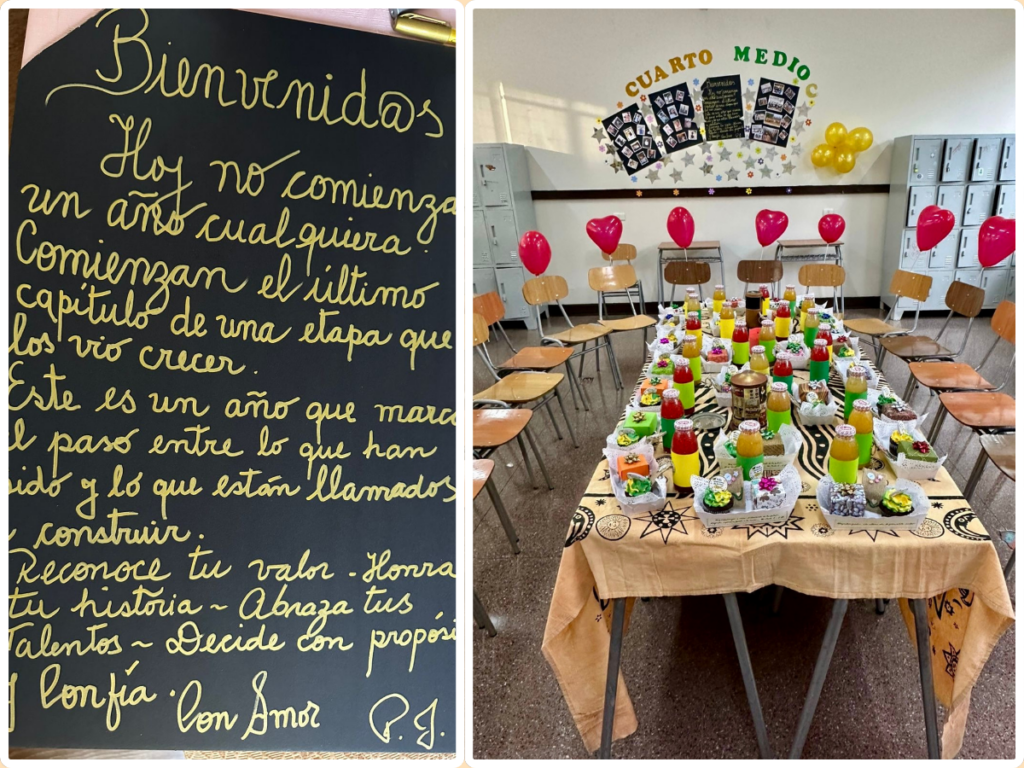 Bienvenid@s
Hoy no comienza
un año cualquiera.
Comienzan el último
capítulo de una etapa que
los vio crecer.
Este es un año que marca
el paso entre lo que han
sido y lo que están llamados
a construir.
Reconoce tu valor - Honra
tu historia ~ Abraza tus
Talentos ~ Decide con propósi
y Confía.
Con Amor P. J.
CUARTO MEDIO C
Bienvenidos